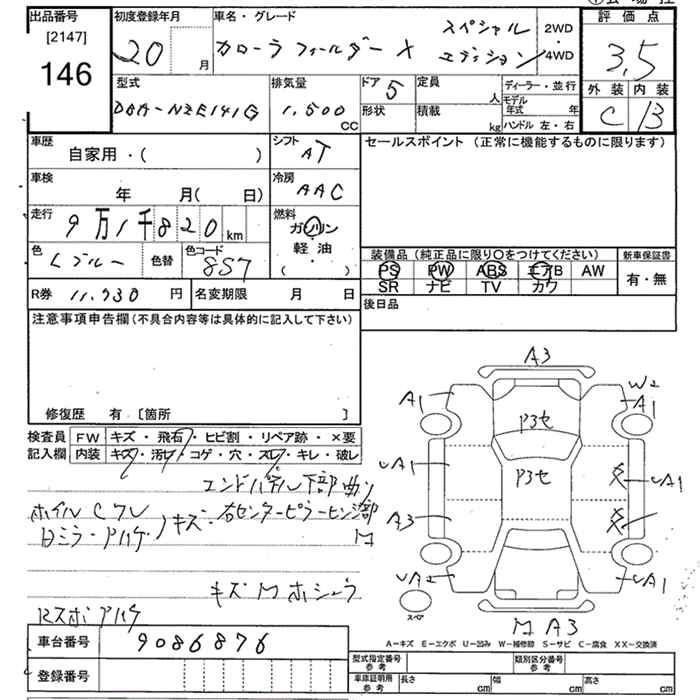 出品番号
[2147]
146
初度登録年月
20 月
車名・グレード
カローラ フィールダー X スペシャル エディション
2WD
・
4WD
評価点
3.5
外装 内装
C B
型式
DBA-NZE141G
排気量
1,500 cc
ドア 5
形状
定員 人
積載 kg
ディーラー・並行
モデル年式 年
ハンドル 左・右
車歴
自家用・( )
シフト
AT
セールスポイント (正常に機能するものに限ります)
車検
年 月( 日)
冷房
AAC
走行
9万1千820km
燃料
ガソリン
軽油
( ・ )
色
Lブルー
色替
色コード
8S7
装備品(純正品に限り○をつけてください)
新車保証書
PS PW ABS エアB AW
SR ナビ TV カワ
有・無
R券 11,930 円
名変期限 月 日
後日品
注意事項申告欄(不具合内容等は具体的に記入して下さい)
修復歴 有 〔箇所 〕
検査員
記入欄
FW キズ・飛石・ヒビ割・リペア跡・×要
内装 キズ・汚レ・コゲ・穴・スレ・キレ・破レ
エンドパネル下部曲り
ホイルCワレ
キズ・右センターピラーヒンジ部
ロミラーアハゲ
キズM ホシュウ
Rスポアハゲ
A3
A1
W2
A1
P3セ
UA1
P3セ
UA1
A3
UA2
UA1
スペア
M A3
A-キズ E-エクボ U-凹み W-補修跡 S-サビ C-腐食 XX-交換済
車台番号 9086876
登録番号
型式指定番号
参考
類別区分番号
参考
車庫証明用
参考
長さ cm
幅 cm
高さ cm